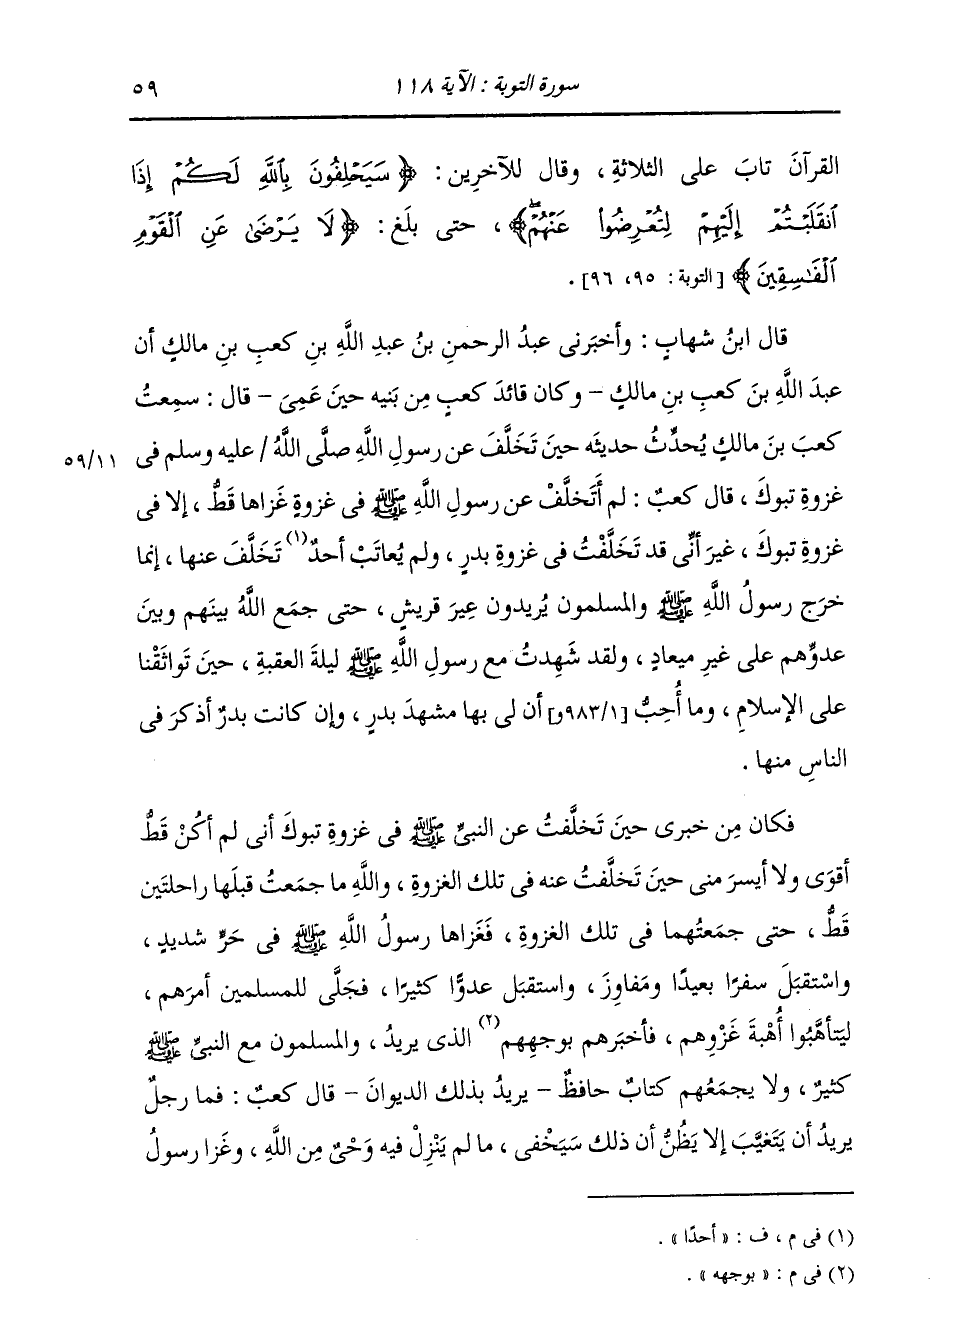 سورة التوبة : الآية ١١٨
٥٩
القرآنَ تابَ على الثلاثةِ ، وقال للآخرِين : ﴿ سَيَحْلِفُونَ بِٱللَّهِ لَكُمْ إِذَا
ٱنقَلَبْتُمْ إِلَيْهِمْ لِتُعْرِضُوا۟ عَنْهُمْ ۖ﴾ ، حتى بلَغ : ﴿ لَا يَرْضَىٰ عَنِ ٱلْقَوْمِ
ٱلْفَـٰسِقِينَ ﴾ [التوبة : ٩٥، ٩٦] .
قال ابنُ شهابٍ : وأخبَرنى عبدُ الرحمنِ بنُ عبدِ اللَّهِ بنِ كعبِ بنِ مالكٍ أن
عبدَ اللَّهِ بنَ كعبِ بنِ مالكٍ – وكان قائدَ كعبٍ مِن بَنيه حينَ عَمِىَ – قال : سمِعتُ
كعبَ بنَ مالكٍ يُحدِّثُ حديثَه حينَ تَخَلَّفَ عن رسولِ اللَّهِ صلَّى اللَّهُ / عليه وسلم فى
٥٩/١١
غزوةِ تبوكَ ، قال كعبٌ : لم أَتَخلَّفْ عن رسولِ اللَّهِ ﷺ فى غزوةٍ غَزاها قَطُّ ، إلا فى
غزوةِ تبوكَ ، غيرَ أنِّى قد تَخَلَّفْتُ فى غزوةِ بدرٍ ، ولم يُعاتَبْ أحدٌ(١) تَخَلَّفَ عنها ، إنما
خرَج رسولُ اللَّهِ ﷺ والمسلمون يُريدون عِيرَ قريشٍ ، حتى جمَع اللَّهُ بينَهم وبينَ
عدوِّهم على غيرِ ميعادٍ ، ولقد شَهِدتُ مع رسولِ اللَّهِ ﷺ ليلةَ العقبةِ ، حينَ تَواثَقْنا
على الإسلامِ ، وما أُحِبُّ [٩٨٣/١و] أن لى بها مشهدَ بدرٍ ، وإن كانت بدرٌ أذكرَ فى
الناسِ منها .
فكان مِن خبرى حينَ تَخلَّفتُ عن النبىِّ ﷺ فى غزوةِ تبوكَ أنى لم أكُنْ قَطُّ
أقوَى ولا أيسرَ منى حينَ تَخلَّفتُ عنه فى تلك الغزوةِ ، واللَّهِ ما جمَعتُ قبلَها راحلتَين
قَطُّ ، حتى جمَعتُهما فى تلك الغزوةِ ، فغَزاها رسولُ اللَّهِ ﷺ فى حَرٍّ شديدٍ ،
واسْتقبَلَ سفرًا بعيدًا ومَفاوِزَ ، واستقبَل عدوًّا كثيرًا ، فجَلَّى للمسلمين أمرَهم ،
ليَتأهَّبُوا أُهْبةَ غَزْوِهم ، فأخبَرهم بوجهِهم(٢) الذى يريدُ ، والمسلمون مع النبىِّ ﷺ
كثيرٌ ، ولا يجمَعُهم كتابٌ حافظٌ – يريدُ بذلك الديوانَ – قال كعبٌ : فما رجلٌ
يريدُ أن يَتَغيَّبَ إلا يَظُنُّ أن ذلك سَيَخْفى ، ما لم يَنْزِلْ فيه وَحْىٌ مِن اللَّهِ ، وغَزا رسولُ
(١) فى م ، ف : « أحدًا » .
(٢) فى م : « بوجهه » .